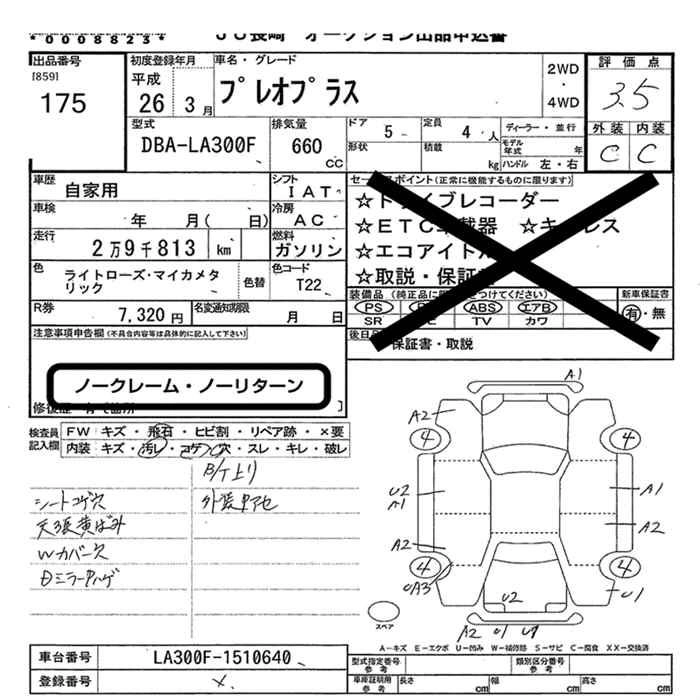 *0008823*
JU長崎 オークション出品申込書
出品番号
[859]
175
初度登録年月
平成
26 3月
車名・グレード
プレオプラス
2WD
・
4WD
評価点
3.5
外装 内装
C C
型式
DBA-LA300F
排気量
660
cc
ドア 5
定員 4人
ディーラー・並行
形状
積載
kg
モデル年式 年
ハンドル 左・右
車歴 自家用
シフト IAT
車検 年 月( 日)
冷房 AC
走行 2万9千813 km
燃料 ガソリン
色 ライトローズ・マイカメタリック
色替
色コード T22
R券 7,320円
名変通知期限 月 日
セールスポイント(正常に機能するものに限ります)
☆ドライブレコーダー
☆ETC車載器 ☆キーレス
☆エコアイドル
☆取説・保証書
装備品
PS ABS エアB
SR TV カワ
新車保証書
有・無
後日品
保証書・取説
注意事項申告欄(不具合内容等は具体的に記入して下さい)
ノークレーム・ノーリターン
検査員記入欄
FW キズ・飛石・ヒビ割・リペア跡・×要
内装 キズ・汚レ・コゲ・穴・スレ・キレ・破レ
B/T上り
シートコゲ穴
外装
天張黄ばみ
Wカバー欠
A1
A2
4
4
U2
A1
A1
A2
A2
4
4
UA3
U1
U2
A2 U1 U1
スペア
A-キズ E-エクボ U-凹み W-補修跡 S-サビ C-腐食 XX-交換済
車台番号 LA300F-1510640
登録番号
型式指定番号 参考
類別区分番号 参考
車庫証明用 参考
長さ cm
幅 cm
高さ cm